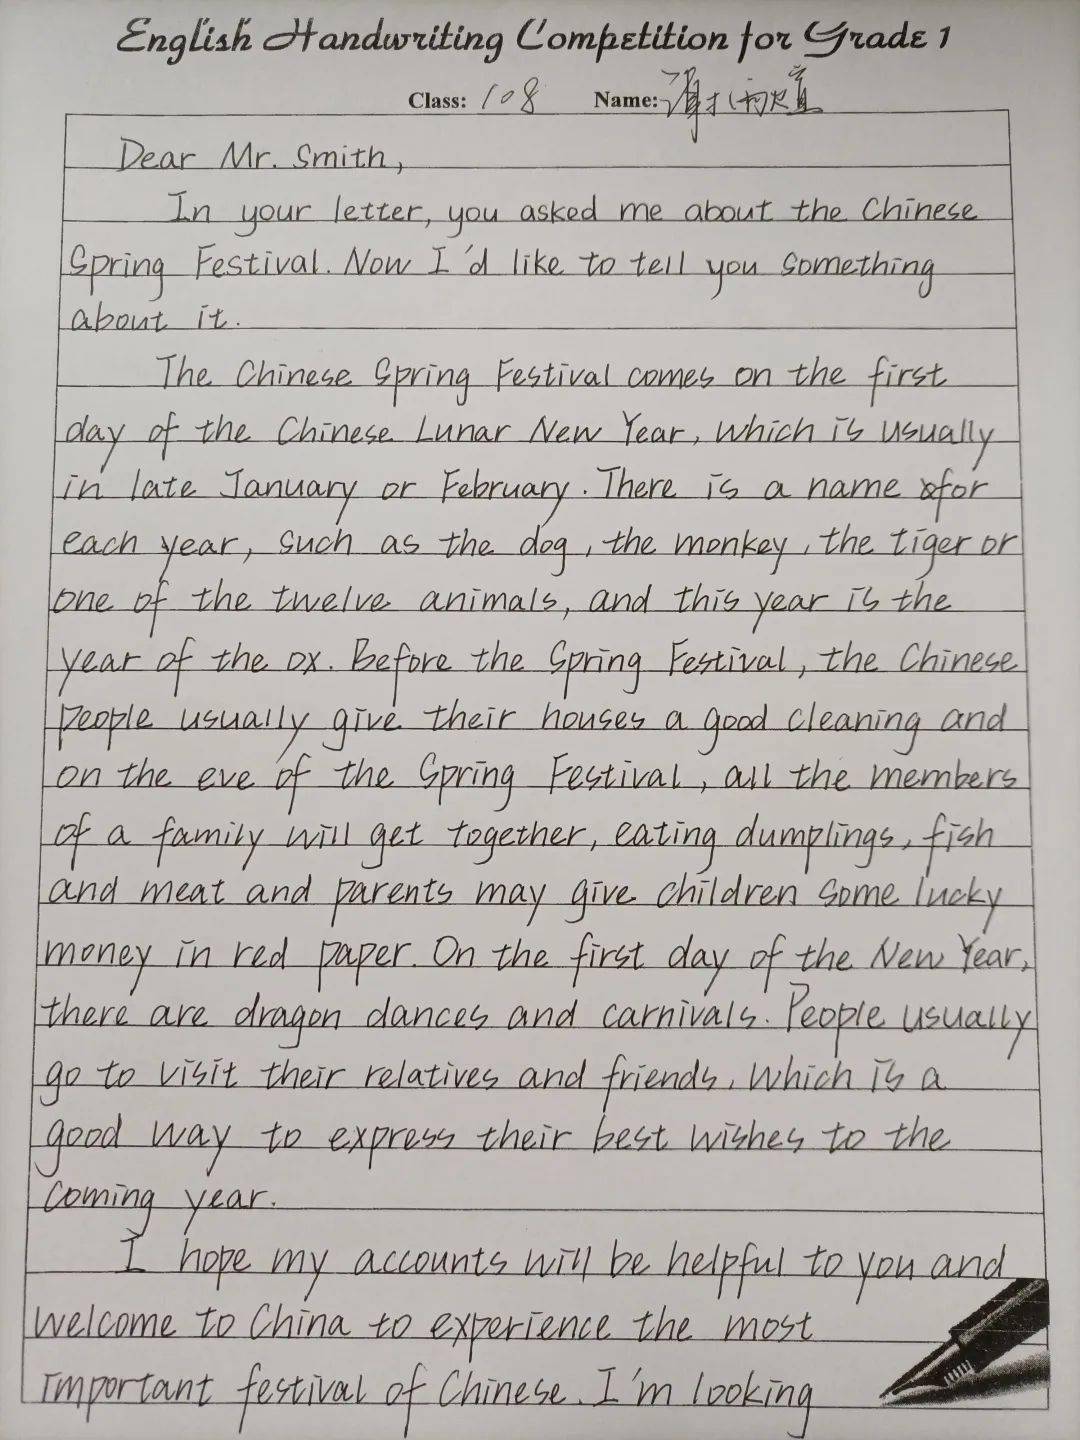 English Handwriting Competition for Grade 1
Class: 108 Name:
Dear Mr. Smith,
In your letter, you asked me about the Chinese
Spring Festival. Now I'd like to tell you something
about it.
The Chinese Spring Festival comes on the first
day of the Chinese Lunar New Year, which is usually
in late January or February. There is a name for
each year, such as the dog, the monkey, the tiger or
one of the twelve animals, and this year is the
year of the ox. Before the Spring Festival, the Chinese
people usually give their houses a good cleaning and
on the eve of the Spring Festival, all the members
of a family will get together, eating dumplings, fish
and meat and parents may give children some lucky
money in red paper. On the first day of the New Year,
there are dragon dances and carnivals. People usually
go to visit their relatives and friends, which is a
good way to express their best wishes to the
coming year.
I hope my accounts will be helpful to you and
welcome to China to experience the most
important festival of Chinese. I'm looking